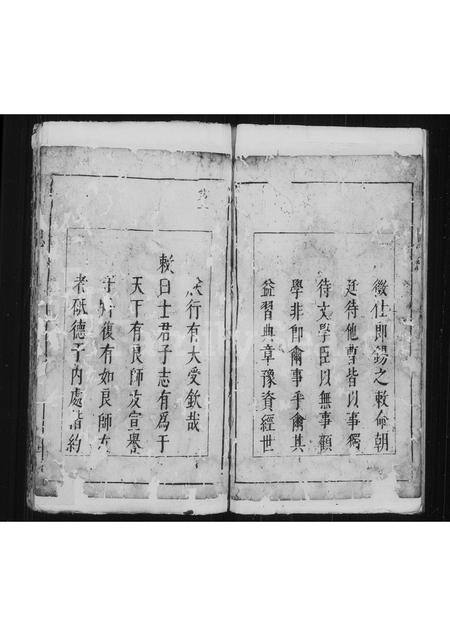 徵仕郎錫之敕命朝
廷待他曹皆以事獨
待文學臣以無事顧
學非卽爾事乎爾其
益習典章豫資經世
行有大受欽哉
敕曰士君子志有爲于
天下有良師友宣譽
于 復有如良師友
者砥德于內處諧約